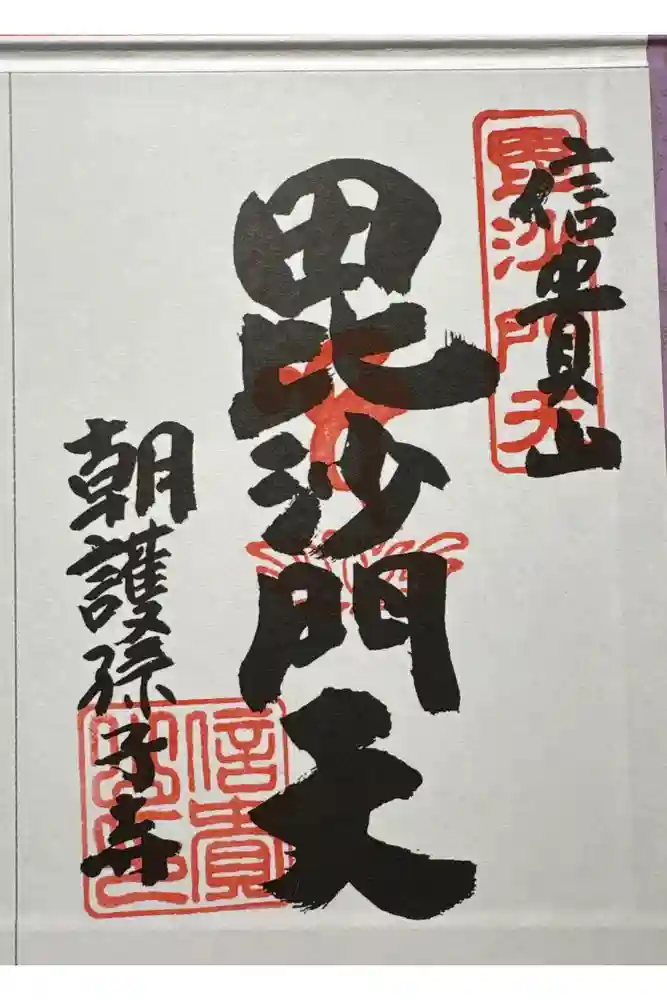 信貴山
毘沙門天
毘沙門天
朝護孫子寺
信貴
山印